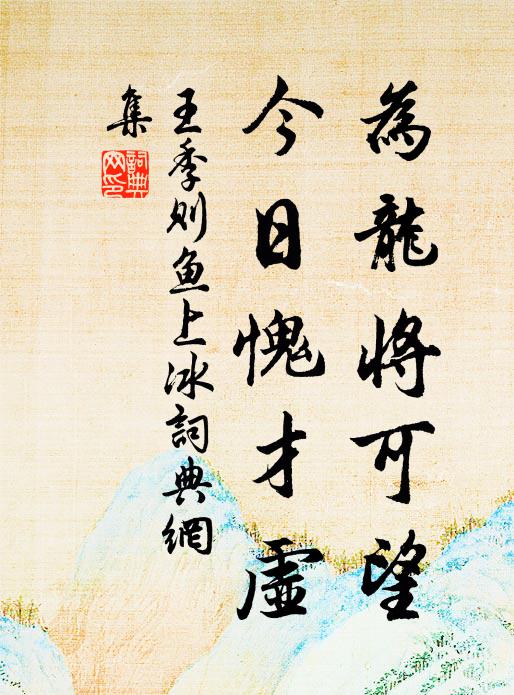 為龍將可望
今日愧才虛
王季則魚上冰詞典網
集
詞典
網印